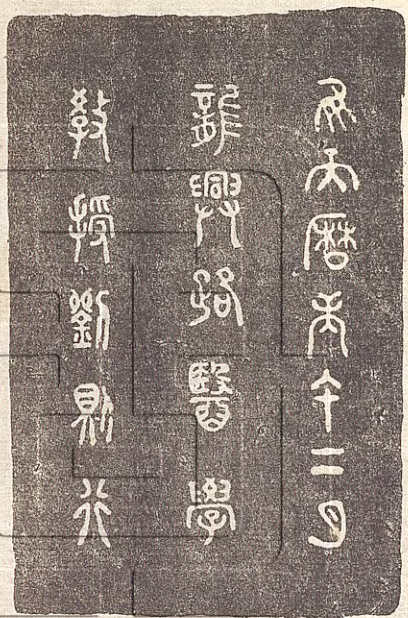 天曆庚午二月
龍興路醫學
教授劉則行